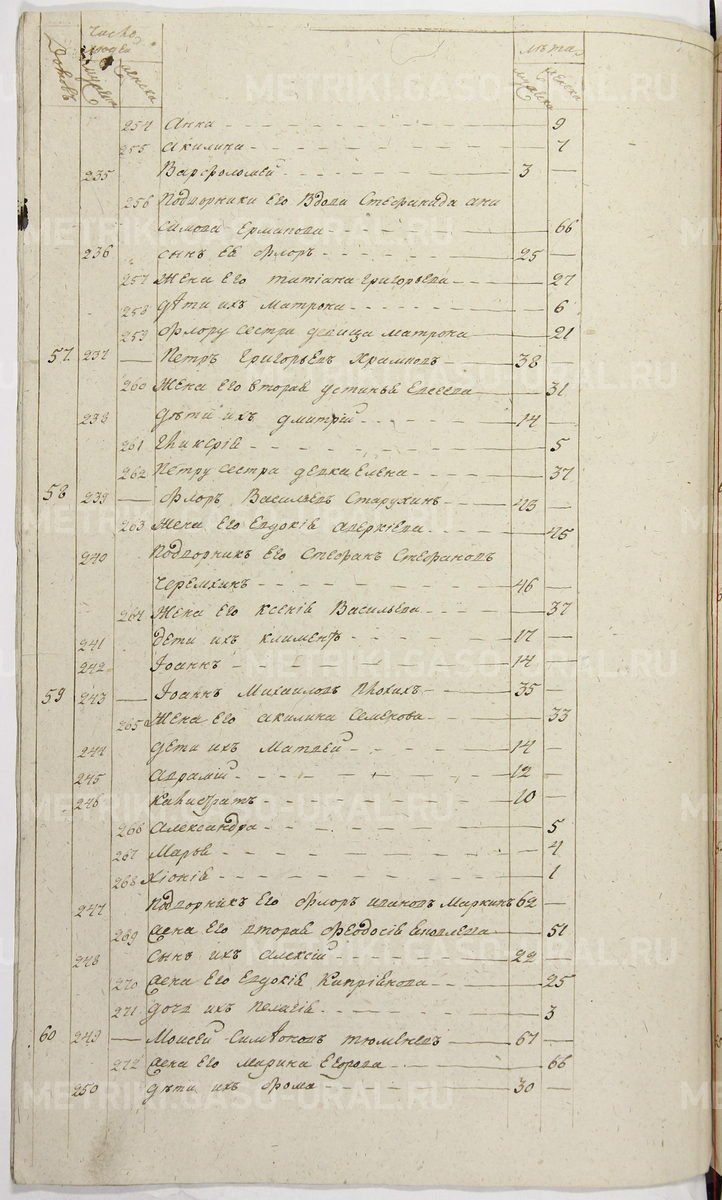 Домовъ Число людей Лѣта
254 Анна 9
255 Акилина 7
235 Варфоломей 3
256 Подворники Его Вдова Стефанида Ани
симова Ермакова 66
236 сынъ Ея Флоръ 25
257 Жена Его татiана григорьева 27
258 дѣти ихъ Матрона 6
259 Флору сестра девица матрона 21
57 237 Петръ григорьевъ Храмцовъ 38
260 Жена Его вторая устинья 31
238 дѣти ихъ дмитрiй 14
261 Гликерiя 5
262 Петру сестра девка Елена 37
58 239 Флоръ Васильевъ Старухинъ 43
263 Жена Его Евдокiя аверкiева 45
240 Подворникъ Его Стефанъ Стефановъ
Черемхинъ 46
264 Жена Его Ксенiя Васильева 37
241 дети ихъ климентъ 17
242 Iоаннъ 14
59 243 Iоаннъ Михаиловъ Плохихъ 35
265 Жена Его акилина Семенова 33
244 дети ихъ Матвей 14
245 аврамiй 12
246 Калистратъ 10
266 Александра 5
267 Марья 4
268 Хiонiя 1
247 Подворникъ Его Флоръ ивановъ Маркинъ 62
269 жена Его вторая Феодосiя 51
248 сынъ ихъ Алексiй 22
270 жена Его Евдокiя Кипрiянова 25
271 дочь ихъ Пелагiя 3
60 249 Моисей Симѣоновъ тюменевъ 67
272 жена Его Марина Егорова 66
250 дѣти ихъ Фома 30
METRIKI.GASO-URAL.RU